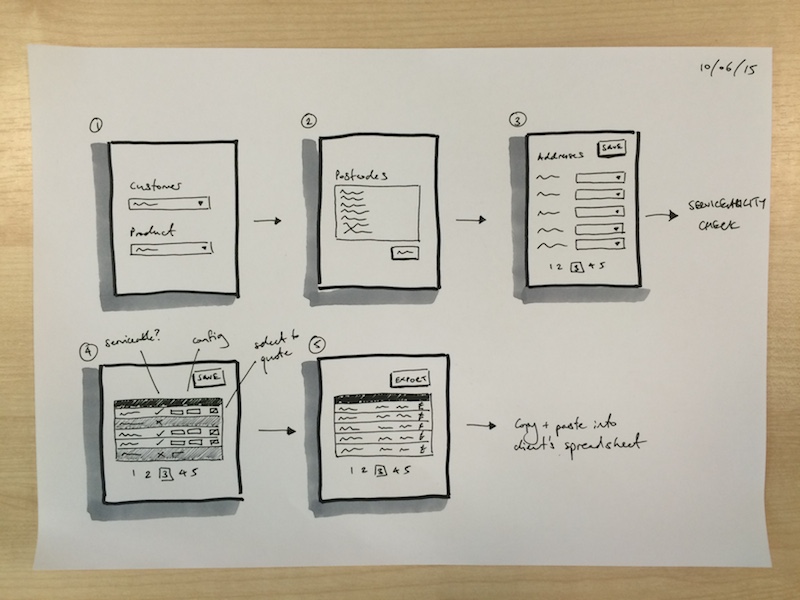 10/06/15
1
Customer
Product
2
Postcodes
3
Addresses
SAVE
1 2 3 4 5
SERVICEABILITY
CHECK
4
serviceable?
config
select to
quote
SAVE
1 2 3 4 5
5
EXPORT
£
£
£
£
£
1 2 3 4 5
Copy + paste into
client's spreadsheet